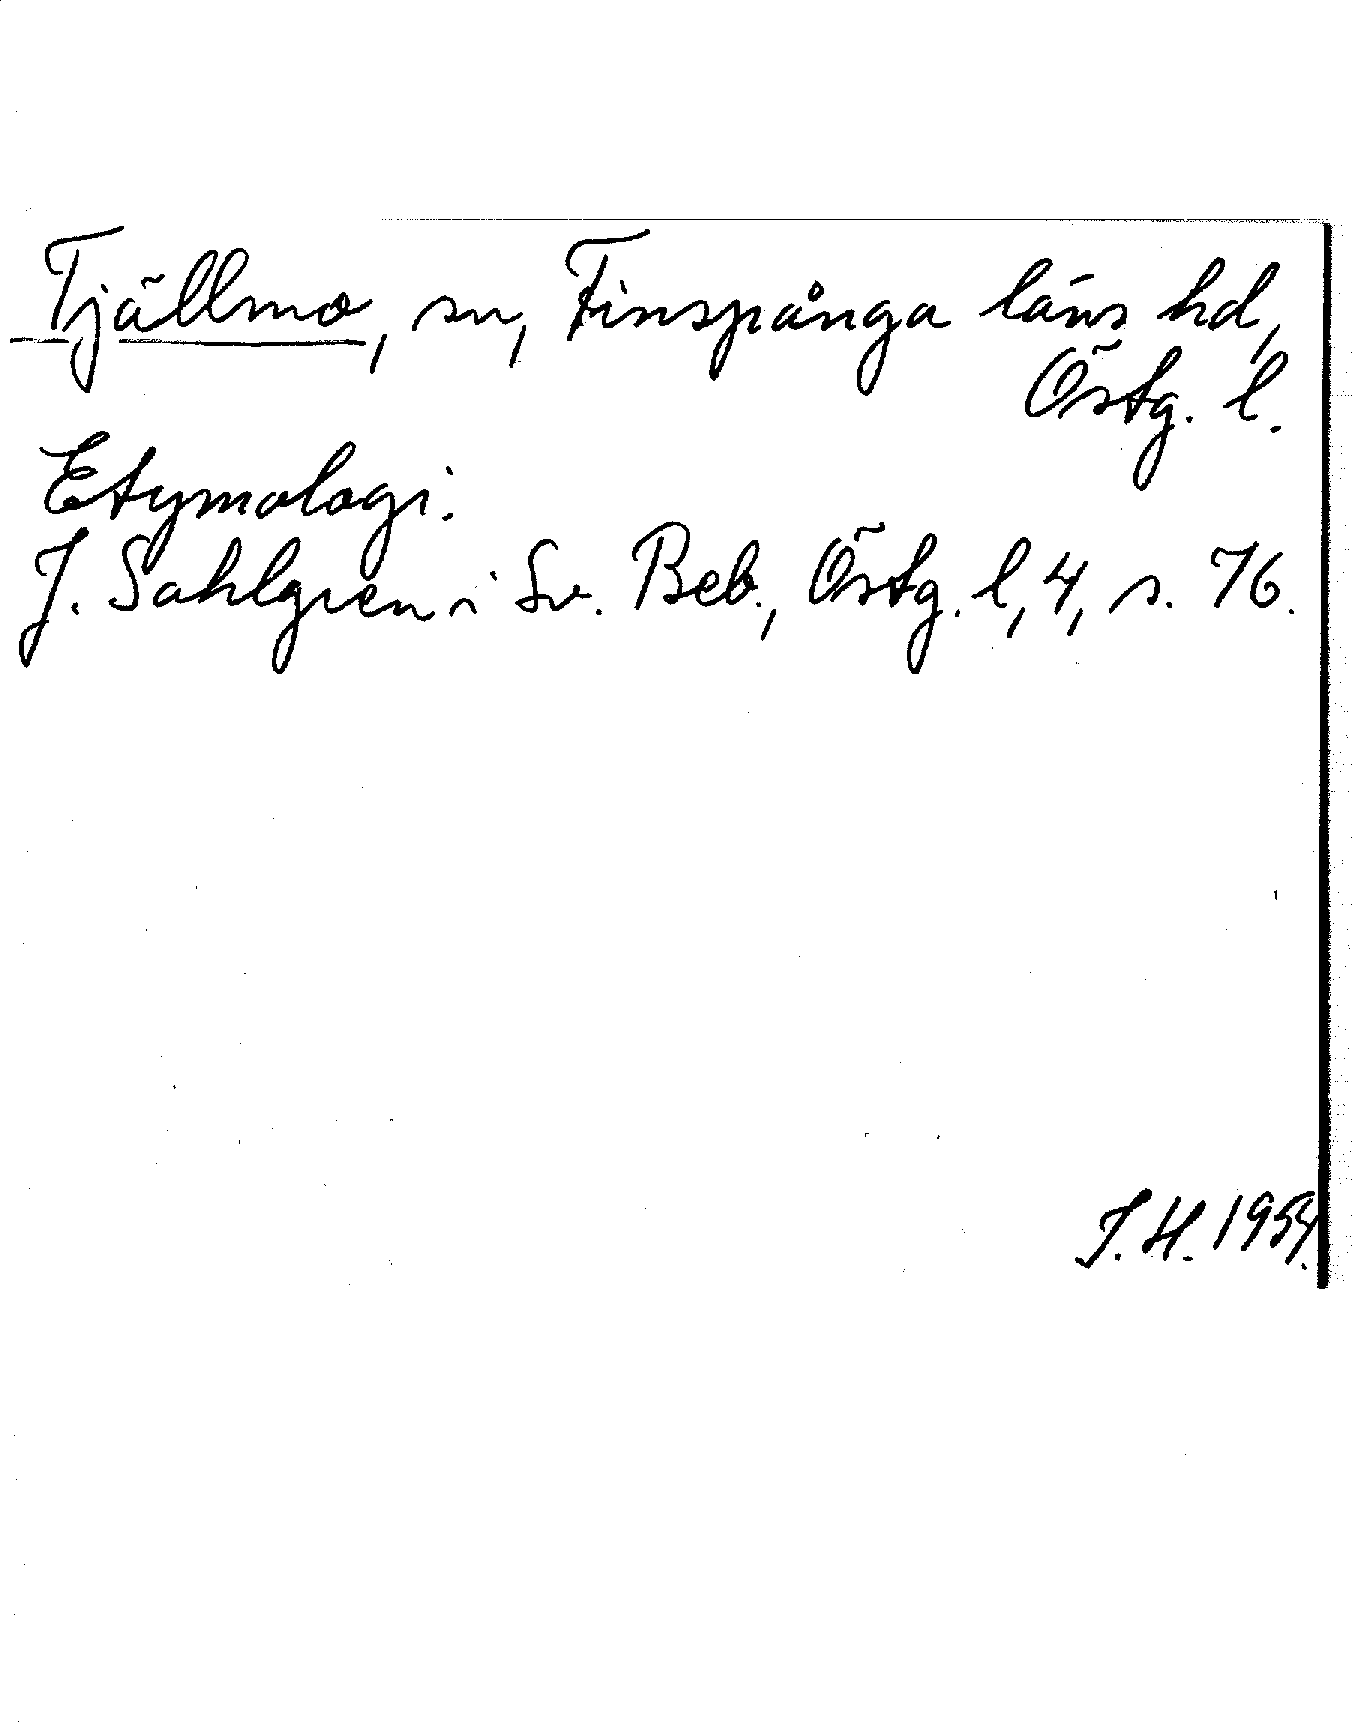 Tjällmo, sn, Finspånga läns hd,
Östg. l.
Etymologi.
J. Sahlgren i Sv. Beb., Östg. l, 4, s. 76.
J. H. 1954.